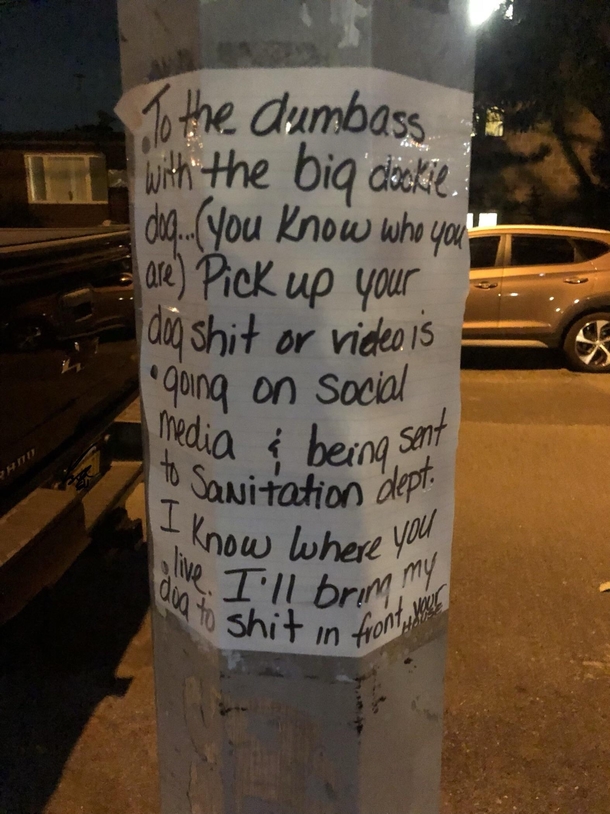 To the dumbass
with the big dookie
dog...(you know who you
are) Pick up your
dog shit or video is
going on social
media & being sent
to Sanitation dept.
I know where you
live. I'll bring my
dog to shit in front your
HOUSE